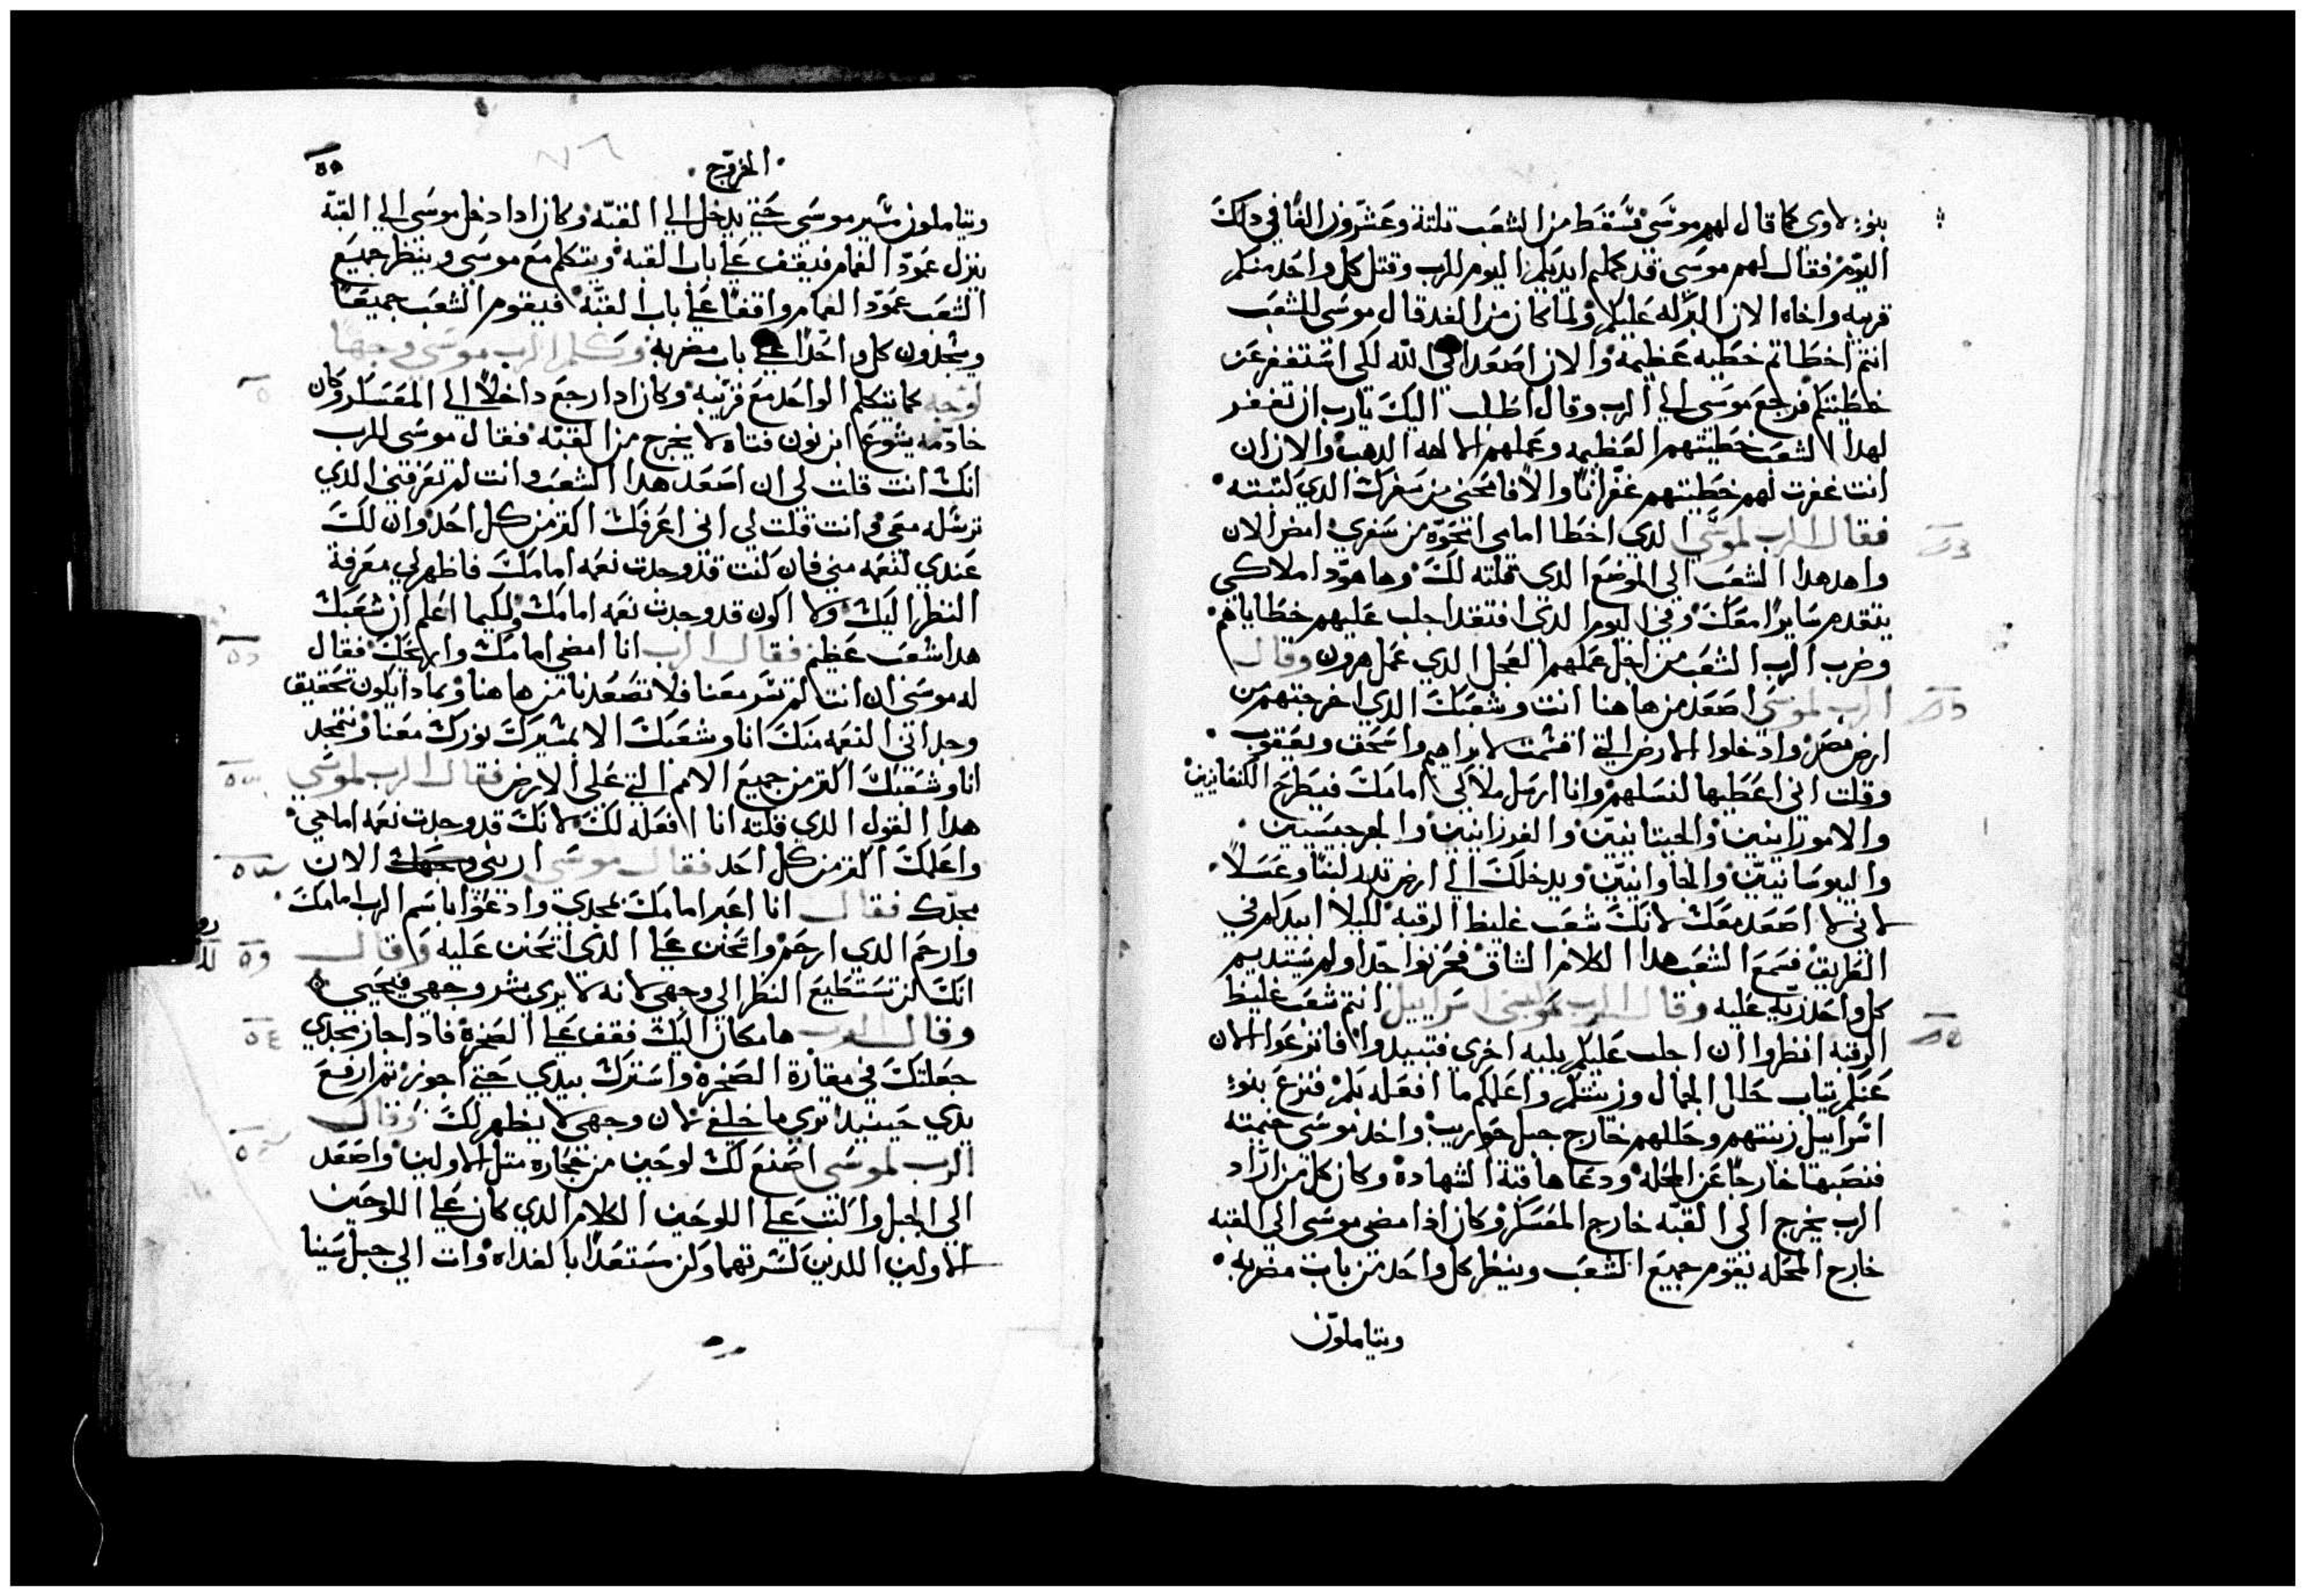 بنوء لاوى كما قال لهم موسى فسقط من الشعب تلتة وعشرون الفا في دلك
اليوم فقال لهم موسى قد كملتم ايديكم اليوم للرب وقتل كل واحد منكم
قريبه واخاه الان البركه عليكم ولما كان من الغد قال موسى للشعب
انتم اخطاتم خطيه عظيمة والان اصعد الى الله لكى استغفر عن
خطيتكم فرجع موسى الى الرب وقال اطلب اليك يارب ان تغفر
لهدا الشعب خطيتهم العظيمه وعملهم الالهه الدهب والان ان
انت غفرت لهم خطيتهم غفرانا والا فامحنى من سفرك الدي كتبته
فقال الرب لموسى الدي اخطا امامى امحوه من سفري امض الان
واهد هدا الشعب الى الموضع الدى قلته لك وها هودا ملاكى
يتقدم سايرا معك وفي اليوم الدي افتقد اجلب عليهم خطاياهم
وضرب الرب الشعب من اجل عملهم العجل الدي عمل هرون وقال
الرب لموسى اصعد من هاهنا انت وشعبك الدي اخرجتهم من
ارض مصر وادخلوا الارض التي اقسمت لابراهيم واسحق ويعقوب
وقلت انى اعطيها لنسلهم وانا ارسل ملاكي امامك فيطرح الكنعانيين
والامورانيين والحيتانيين والفرزانيين والجرجيسيين
واليبوسانيين والحاوانيين ويدخلك الى ارض تدر لبنا وعسلا
لانى لا اصعد معك لانك شعب غليظ الرقبه لليلا ابيدكم في
الطريق فسمع الشعب هدا الكلام الشاق فحزنوا جدا ولم
كل واحد زيه عليه وقال الرب لموسى اسراييل انتم شعب غليظ
الرقبة انظروا ان اجلب عليكم بليه اخرى فتبيدوا فانزعوا الان
عنكم تياب حلل الجمال وزينتكم واعلمكم ما افعله بكم فنزع بنوء
اسراييل زينتهم وحللهم خارج جبل حواريب واخد موسى خيمته
فنصبها خارجا عن المحله ودعاها قبة الشهادة وكان كل من اراد
الرب يخرج الى القبه خارج المعسكر وكان اذا مضى موسى الى القبه
خارج المحله يقوم جميع الشعب وينظر كل واحد من باب مضربه
ويتاملون
الخروج
ويتاملون مسير موسى حتى يدخل الى القبه وكان ادا دخل موسى الى القبة
ينزل عمود الغمام فيقف على باب القبه ويتكلم مع موسى وينظر جميع
الشعب عمود الغمام واقفا على باب القبه فيقوم الشعب جميعا
ويسجدون كل واحد على باب مضربه وكلم الرب موسى وجها
لوجه كما يتكلم الواحد مع قريبه وكان ادا رجع داخلا الى المعسكر وكان
خادمه يشوع ابن نون فتاه لا يخرج من القبه فقال موسى للرب
انك انت قلت لى ان اصعد هدا الشعب وانت لم تعرفنى الدي
ترسله معى وانت قلت لي انى اعرفك اكتر من كل احد وان لك
عندي لنعمه منى فان كنت قد وجدت نعمه امامك فاظهر لي معرفة
النظر اليك ولا اكون قد وجدت نعمه امامك ولكيما اعلم ان شعبك
هدا شعب عظيم فقال الرب انا امضى امامك واريحك فقال
له موسى ان انت لم تسر معنا فلا تصعدنا من هاهنا وبمادا يكون تحقيق
وجدانى النعمه منك انا وشعبك الا بمسيرك معنا ونتمجد
انا وشعبك اكتر من جميع الامم التي على الارض فقال الرب لموسى
هدا القول الدي قلته انا افعله لك لانك قد وجدت نعمه امامي
واعلمك اكتر من كل احد فقال موسى ارينى وجهك الان
مجدك فقال انا اعبر امامك بمجدي وادعوا باسم الرب امامك
وارحم الدي ارحم واتحنن على الدى اتحنن عليه وقال
انك لن تستطيع النظر الى وجهى لانه لا يرى بشر وجهي فيحيى
وقال الرب ها مكان اليك فقف على الصخرة فادا جاز مجدي
جعلتك في مغارة الصخرة واسترك بيدي حتى اجوز تم ارفع
يدي حينيد ترى ما خلفى لان وجهى لا يظهر لك وقال
الرب لموسى اصنع لك لوحين من حجاره متل الاولين واصعد
الى الجبل واكتب على اللوحين الكلام الدي كان على اللوحين
الاولين اللدين كسرتهما وكن مستعدا بالغداه وات الى جبل سينا